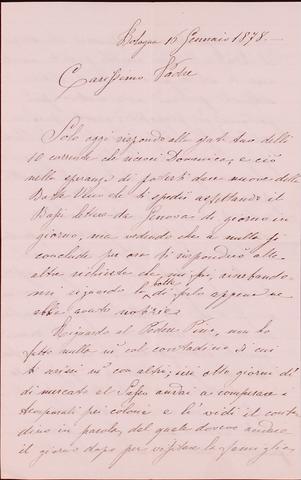 Bologna 16 Gennaio 1878.
Carissimo Padre
Solo oggi rispondo alla grat. tua delli
10 corrente che ricevei Domenica, e ciò
nella speranza di poterti dare nuove della
Balla che ti spedii aspettando il
lettera da Genova di giorno in
giorno, ma vedendo che a nulla si
conclude per ora ti risponderò alle
altre richieste che mi fai, riserbando
mi riguardo la balla di appena ne
abbia avute notizie.
Riguardo al Podere Pino, non ho
fatto nulla nè col contadino di cui
ti scrissi nè con altri; ieri otto giorni dì
di mercato al andai a comperare i
temporali pei coloni e là vidi il conta
dino in parola, del quale dovevo andare
il giorno dopo per visitare la famiglia,